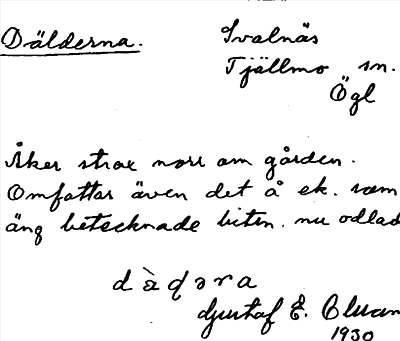 Dälderna. Svalnäs
Tjällmo sn.
Ögl
Åker strax norr om gården.
Omfattar även det å ek. som
äng betecknade biten. nu odlad
Gustaf E.
1930